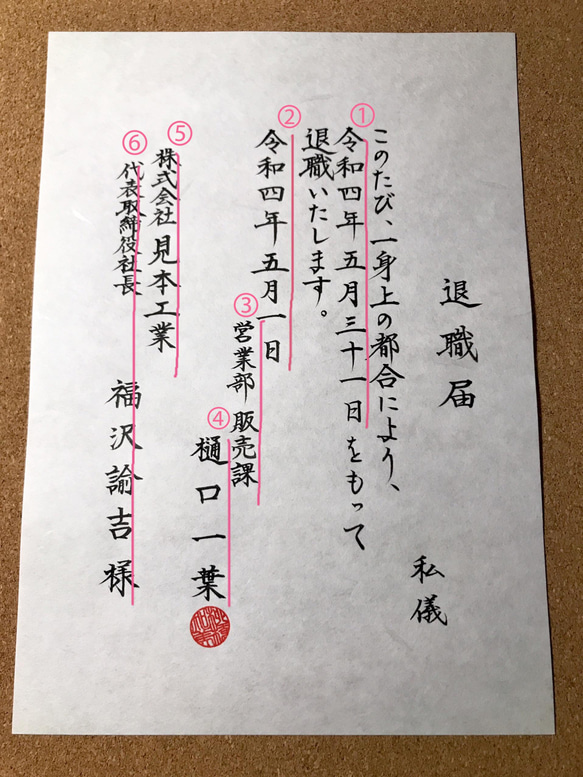 退職届
私儀
このたび、一身上の都合により、
①令和四年五月三十一日をもって
退職いたします。
②令和四年五月一日
③営業部 販売課
④樋口一葉
⑤株式会社 見本工業
⑥代表取締役社長 福沢諭吉様